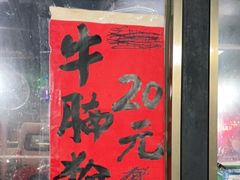 牛腩粉
20元